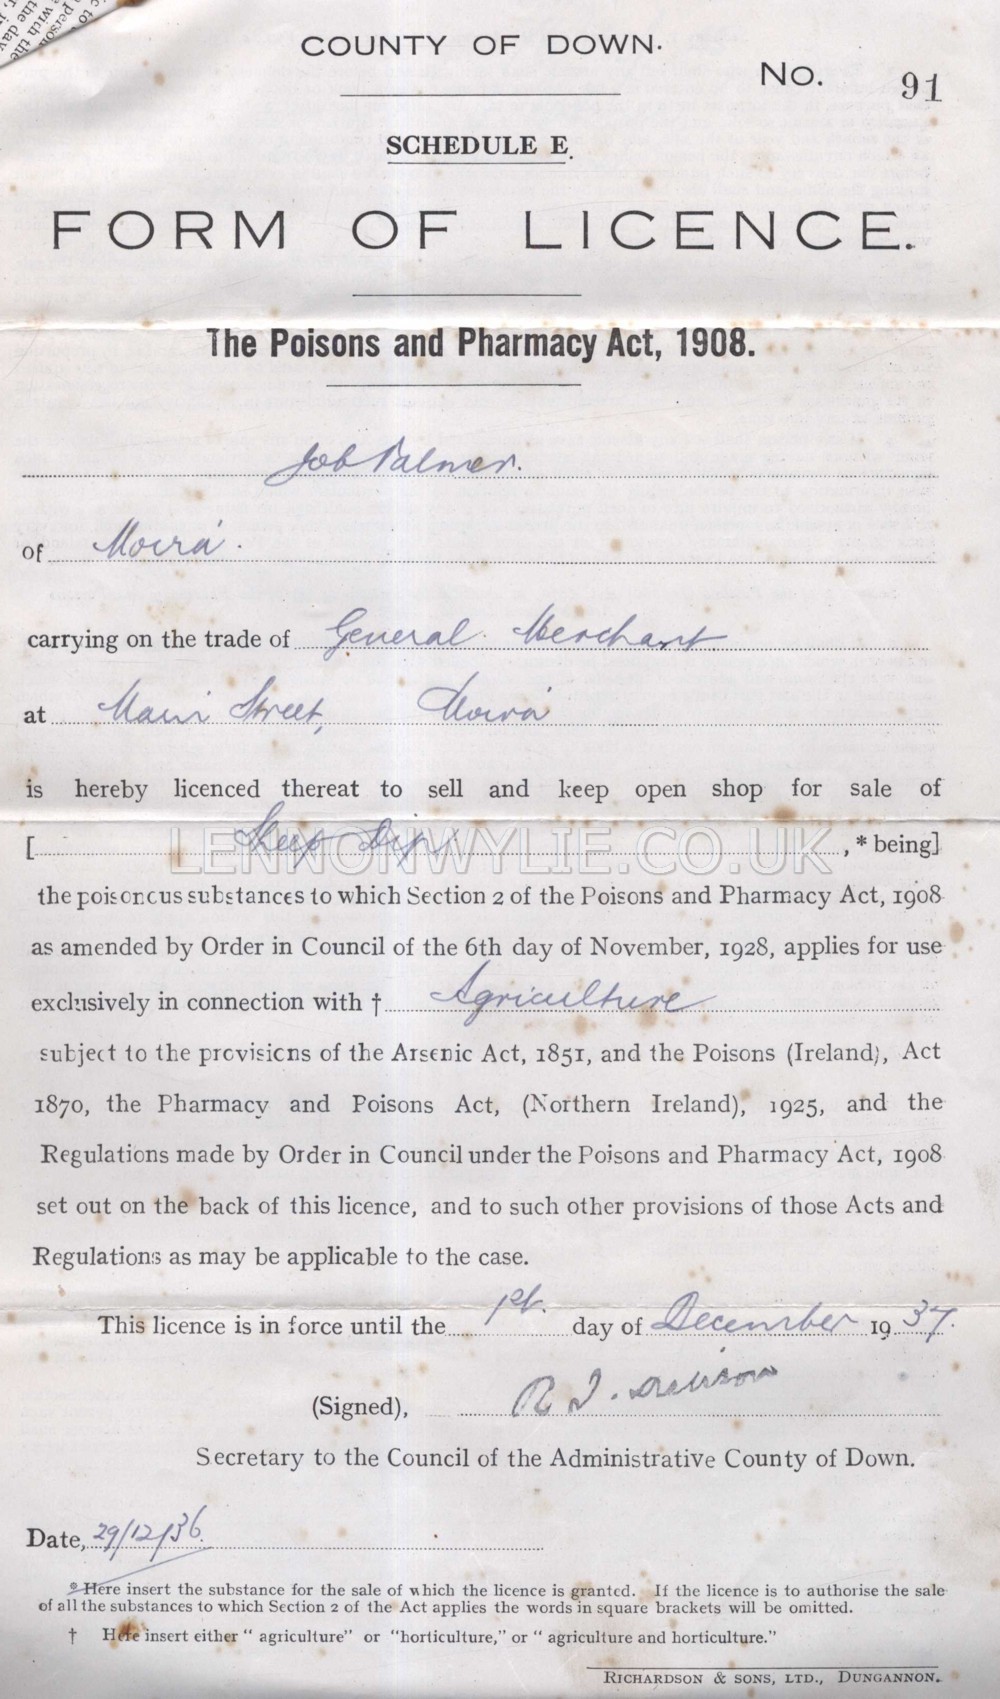 COUNTY OF DOWN.
No. 91
SCHEDULE E.
FORM OF LICENCE.
The Poisons and Pharmacy Act, 1908.
Job Palmer.
of Moira.
carrying on the trade of General Merchant
at Main Street, Moira
is hereby licenced thereat to sell and keep open shop for sale of
[ Sheep Dips , * being]
LENNONWYLIE.CO.UK
the poisonous substances to which Section 2 of the Poisons and Pharmacy Act, 1908
as amended by Order in Council of the 6th day of November, 1928, applies for use
exclusively in connection with † Agriculture
subject to the provisions of the Arsenic Act, 1851, and the Poisons (Ireland), Act
1870, the Pharmacy and Poisons Act, (Northern Ireland), 1925, and the
Regulations made by Order in Council under the Poisons and Pharmacy Act, 1908
set out on the back of this licence, and to such other provisions of those Acts and
Regulations as may be applicable to the case.
This licence is in force until the 1st. day of December 1937.
(Signed), R J.
Secretary to the Council of the Administrative County of Down.
Date, 29/12/36.
* Here insert the substance for the sale of which the licence is granted. If the licence is to authorise the sale
of all the substances to which Section 2 of the Act applies the words in square brackets will be omitted.
† Here insert either "agriculture" or "horticulture," or "agriculture and horticulture."
RICHARDSON & SONS, LTD., DUNGANNON.